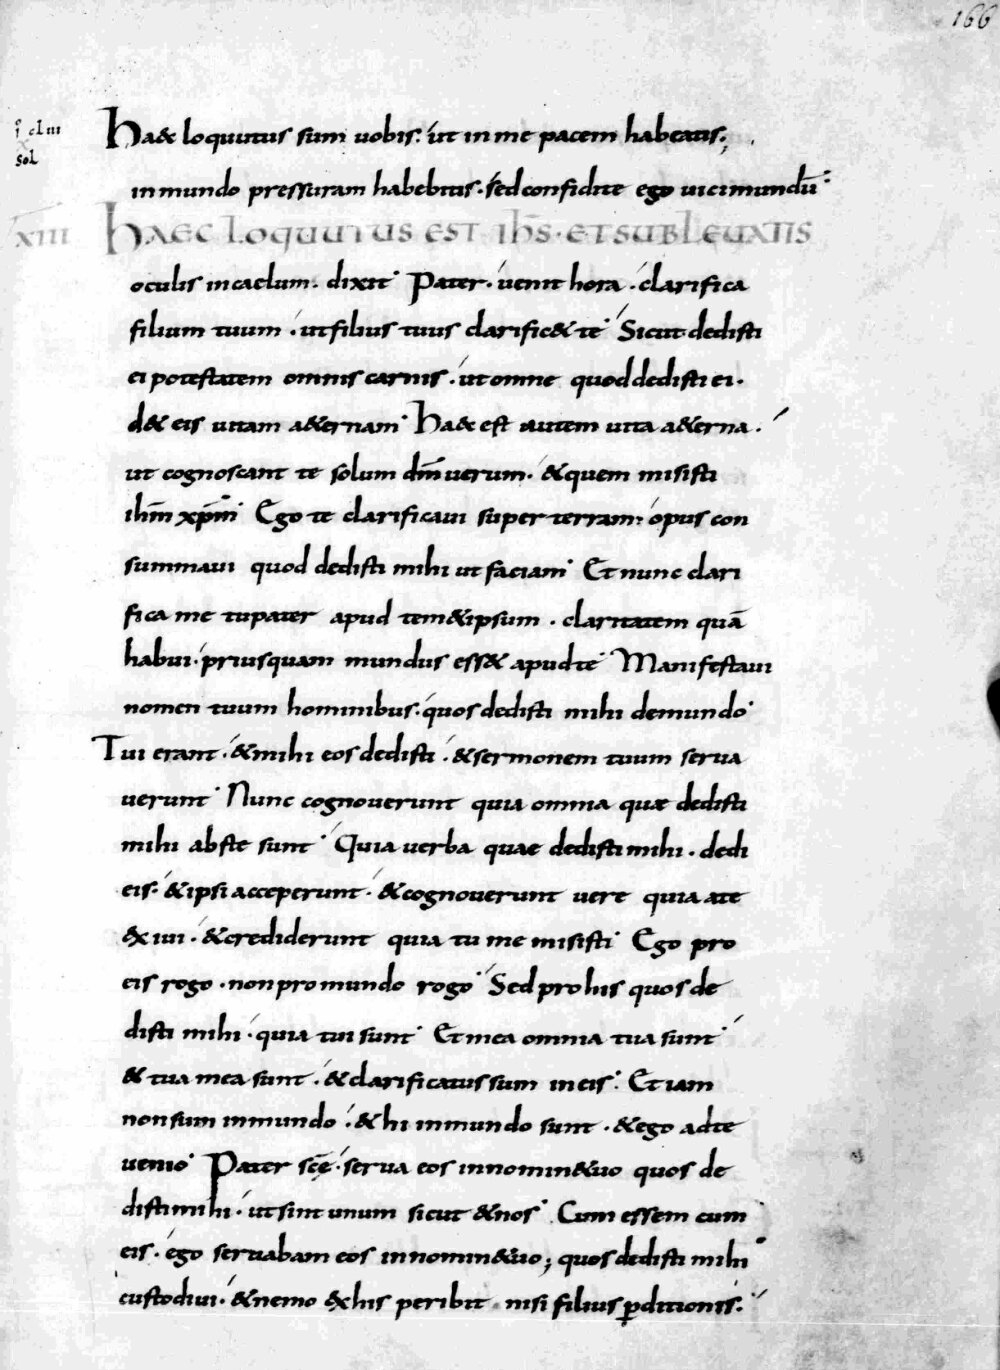 166
clııı
sol
ha&c loquutus sum uobis. ut in me pacem habeatis;
in mundo pressuram habebitis. sed confidite ego uici mundū
XIII
HAEC LOQUUTUS EST IHS̄. ET SUBLEUATIS
oculis in caelum. dixit. Pater. uenit hora. clarifica
filium tuum. ut filius tuus clarific& te. Sicut dedisti
ei potestatem omnis carnis. ut omne quod dedisti ei.
d& eis uitam a&ernam. Haec est autem uita a&erna.
ut cognoscant te solum dm̄ uerum. & quem misisti
ihm̄ xpm̄. Ego te clarificaui super terram. opus con
summaui quod dedisti mihi ut faciam. Et nunc clari
fica me tu pater apud tem&ipsum. claritatem quā
habui. priusquam mundus ess& apud te. Manifestaui
nomen tuum hominibus. quos dedisti mihi de mundo.
Tui erant. & mihi eos dedisti. & sermonem tuum serua
uerunt. Nunc cognouerunt quia omnia quae dedisti
mihi abs te sunt. Quia uerba quae dedisti mihi. dedi
eis. & ipsi acceperunt. & cognouerunt uere quia a te
exiui. & crediderunt quia tu me misisti. Ego pro
eis rogo. non pro mundo rogo. Sed pro his quos de
disti mihi. quia tui sunt. Et mea omnia tua sunt.
& tua mea sunt. & clarificatus sum in eis. Et iam
non sum in mundo. & hi in mundo sunt. & ego ad te
uenio. Pater scē. serua eos in nomin& uo quos de
disti mihi. ut sint unum sicut & nos. Cum essem cum
eis. ego seruabam eos in nomin& uo; quos dedisti mihi
custodiui. & nemo ex his peribit. nisi filius p̱ditionis.